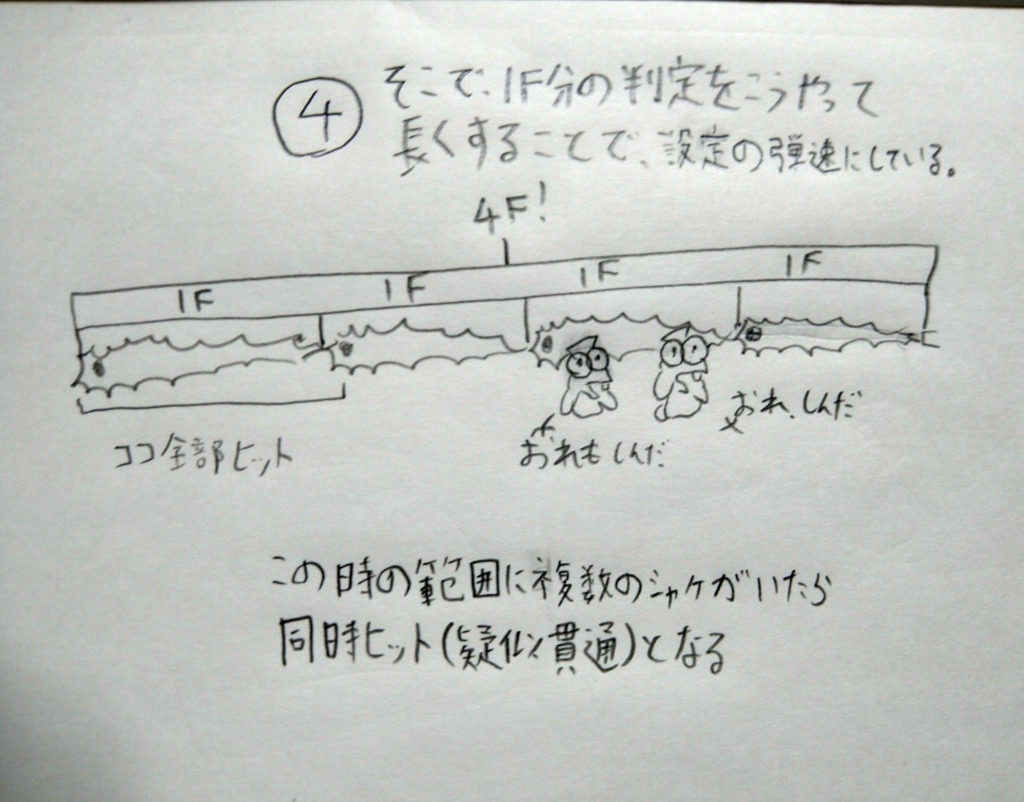 ④ そこで、1F分の判定をこうやって
長くすることで、設定の弾速にしている。
4F!
1F 1F 1F 1F
おれ、しんだ
おれもしんだ
ココ全部ヒット
この時の範囲に複数のシャケがいたら
同時ヒット(疑似貫通)となる